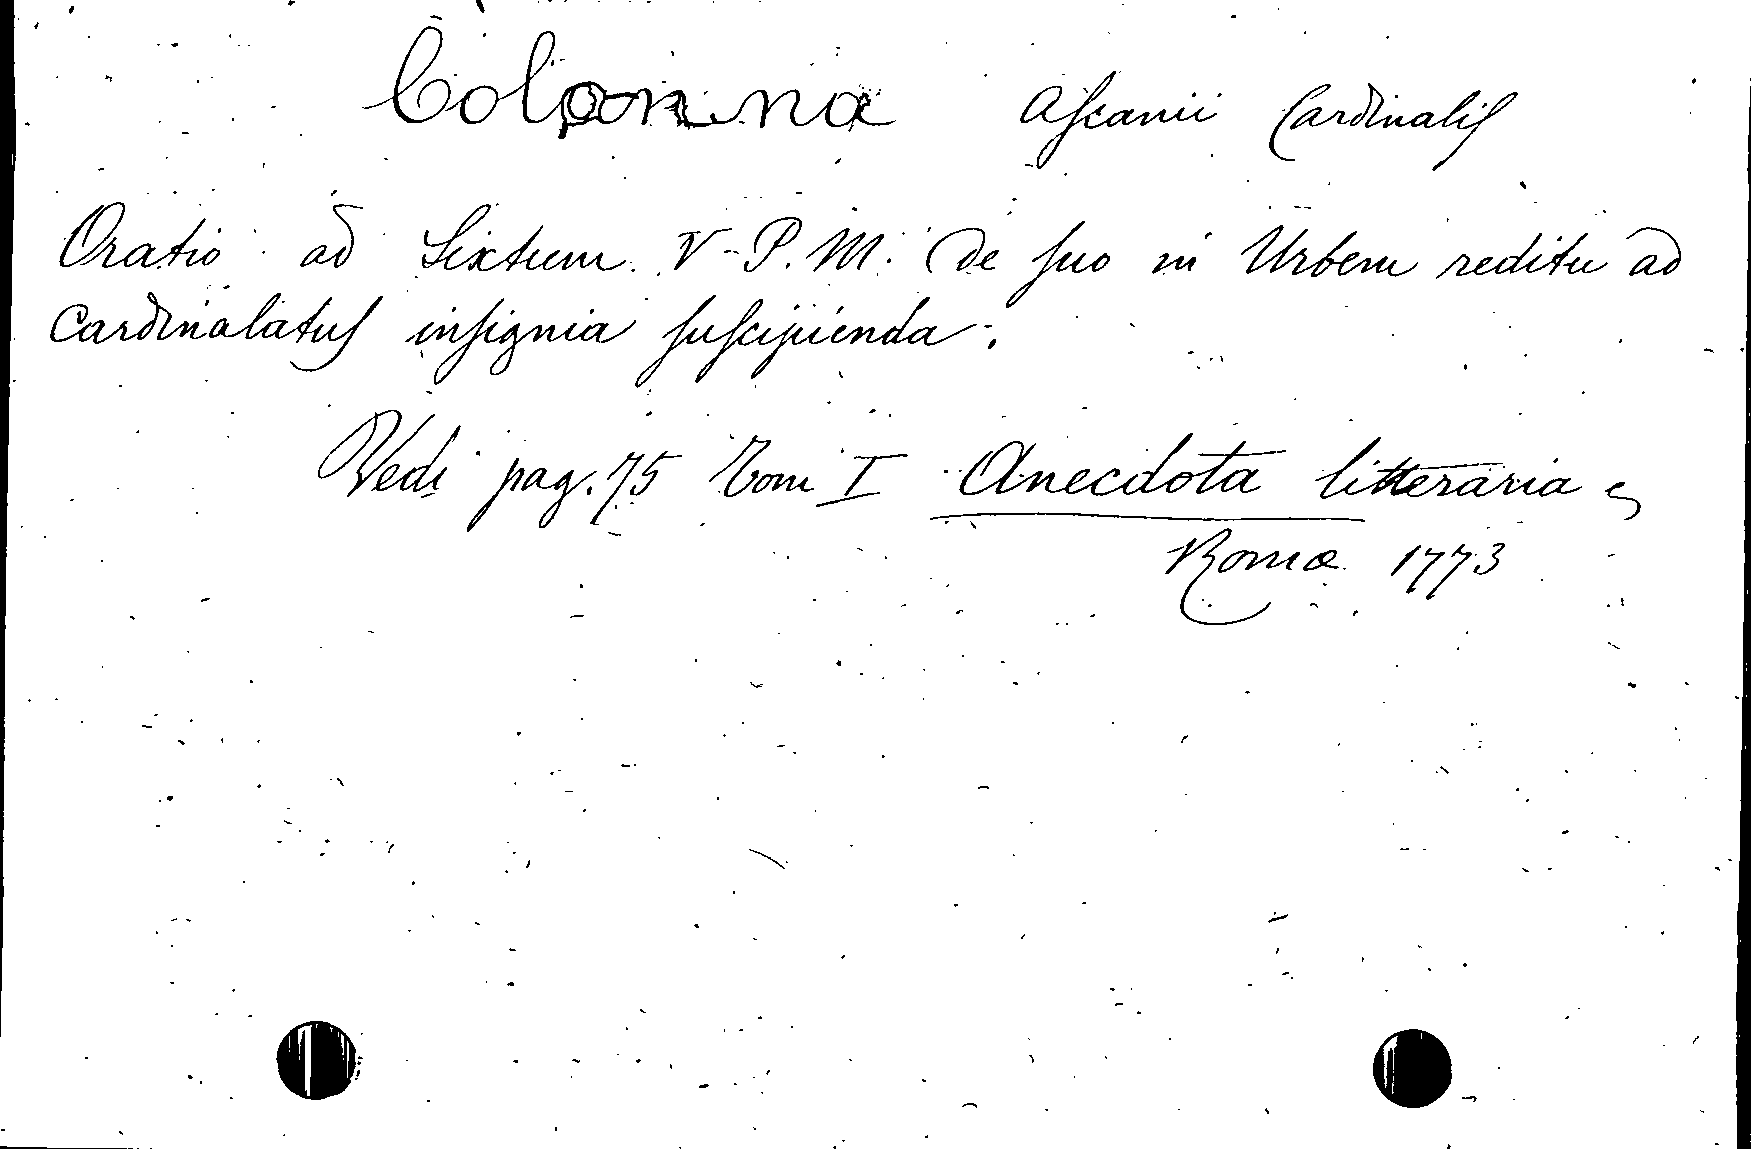 Colonna Ascanii Cardinalis
Oratio ad Sixtum V-P.M. De suo in Urbem reditu ad
Cardinalatus insignia suscipienda.
Vedi pag. 75 Tom I Anecdota litteraria
Romæ 1773